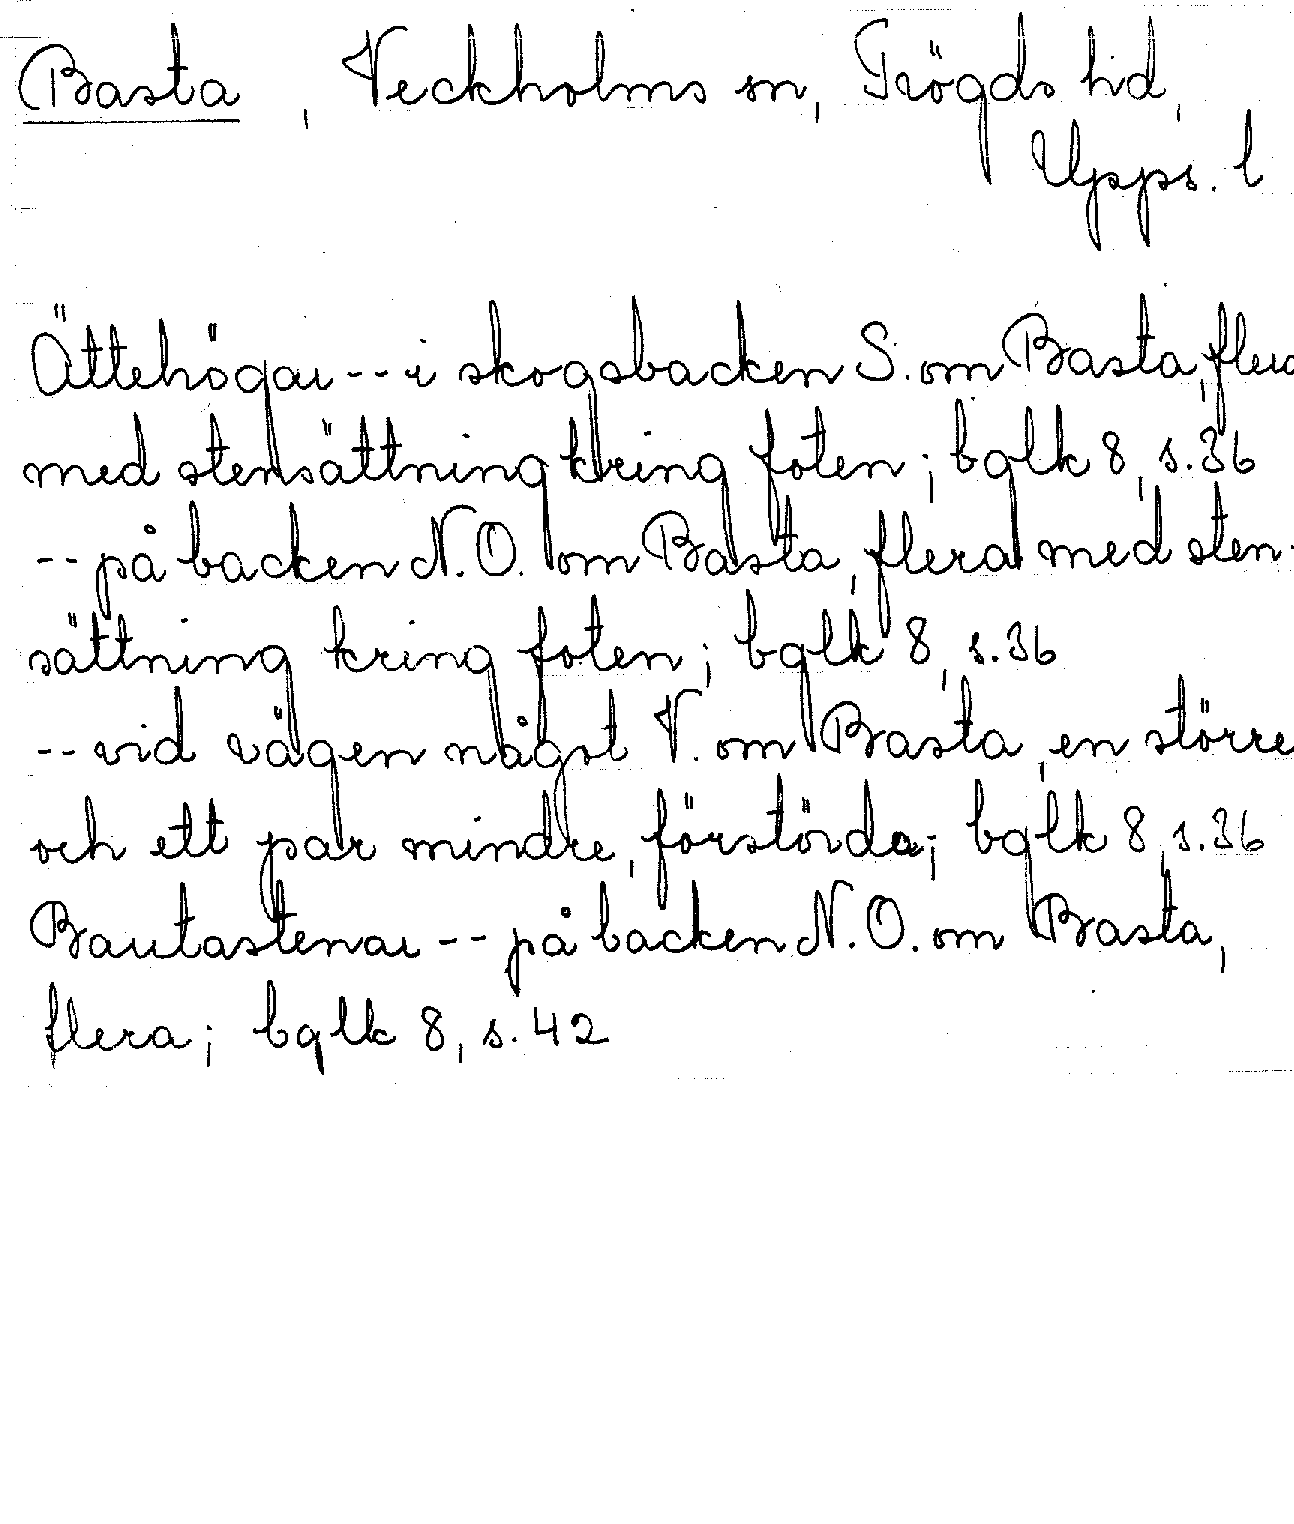 Basta, Veckholms sn, Trögds hd,
Upps. l
Ättehögar -- i skogsbacken S. om Basta, flera
med stensättning kring foten; bglk 8, s. 36
-- på backen N.O. om Basta, flera med sten-
sättning kring foten; bglk 8, s. 36
-- vid vägen någst V. om Basta, en större
och ett par mindre, förstörda; bglk 8, s. 36
Bautastenar -- på backen N.O. om Basta,
flera; bglk 8, s. 42